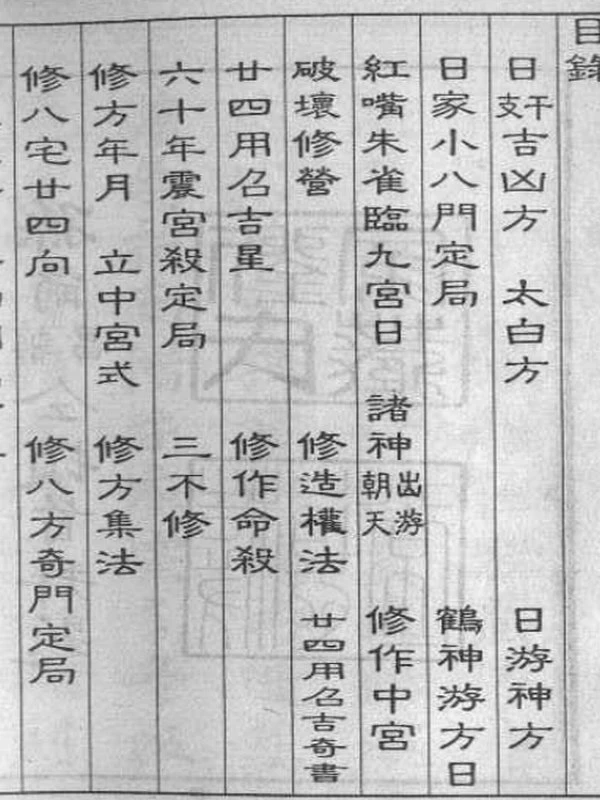 目錄
日干支吉凶方 太白方 日游神方
日家小八門定局 鶴神游方日
紅嘴朱雀臨九宮日 諸神出游朝天 修作中宮
破壞修營 修造權法 廿四用召吉奇書
廿四用召吉星 修作命殺
六十年震宮殺定局 三不修
修方年月 立中宮式 修方集法
修八宅廿四向 修八方奇門定局